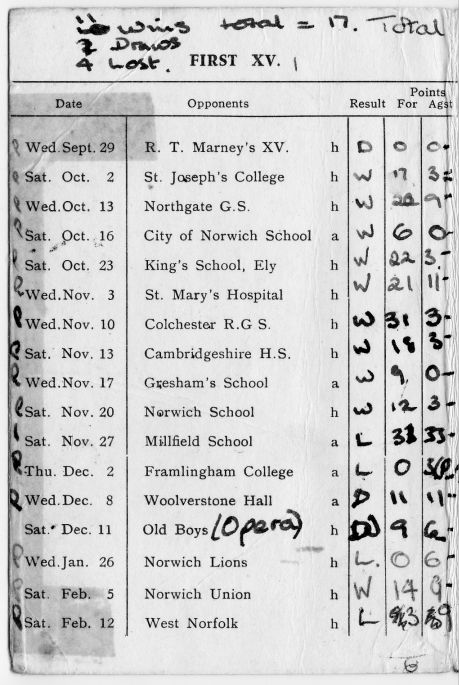 11 Wins total = 17. Total
2 Draws
4 Lost. FIRST XV.
Points
Date Opponents Result For Agst
P Wed. Sept. 29 R. T. Marney's XV. h D 0 0-
P Sat. Oct. 2 St. Joseph's College h W 17 3-
P Wed. Oct. 13 Northgate G.S. h W 9-
P Sat. Oct. 16 City of Norwich School a W 6 0-
P Sat. Oct. 23 King's School, Ely h W 22 3-
P Wed. Nov. 3 St. Mary's Hospital h W 21 11-
P Wed. Nov. 10 Colchester R.G S. h W 31 3-
P Sat. Nov. 13 Cambridgeshire H.S. h W 18 3-
P Wed. Nov. 17 Gresham's School a W 9 0-
P Sat. Nov. 20 Norwich School h W 12 3-
Sat. Nov. 27 Millfield School a L
P Thu. Dec. 2 Framlingham College a L 0
P Wed. Dec. 8 Woolverstone Hall a D 11 11-
Sat. Dec. 11 Old Boys (Opera) h W 9 6-
P Wed. Jan. 26 Norwich Lions h L. 0 6-
P Sat. Feb. 5 Norwich Union h W 14 9-
P Sat. Feb. 12 West Norfolk h L
6